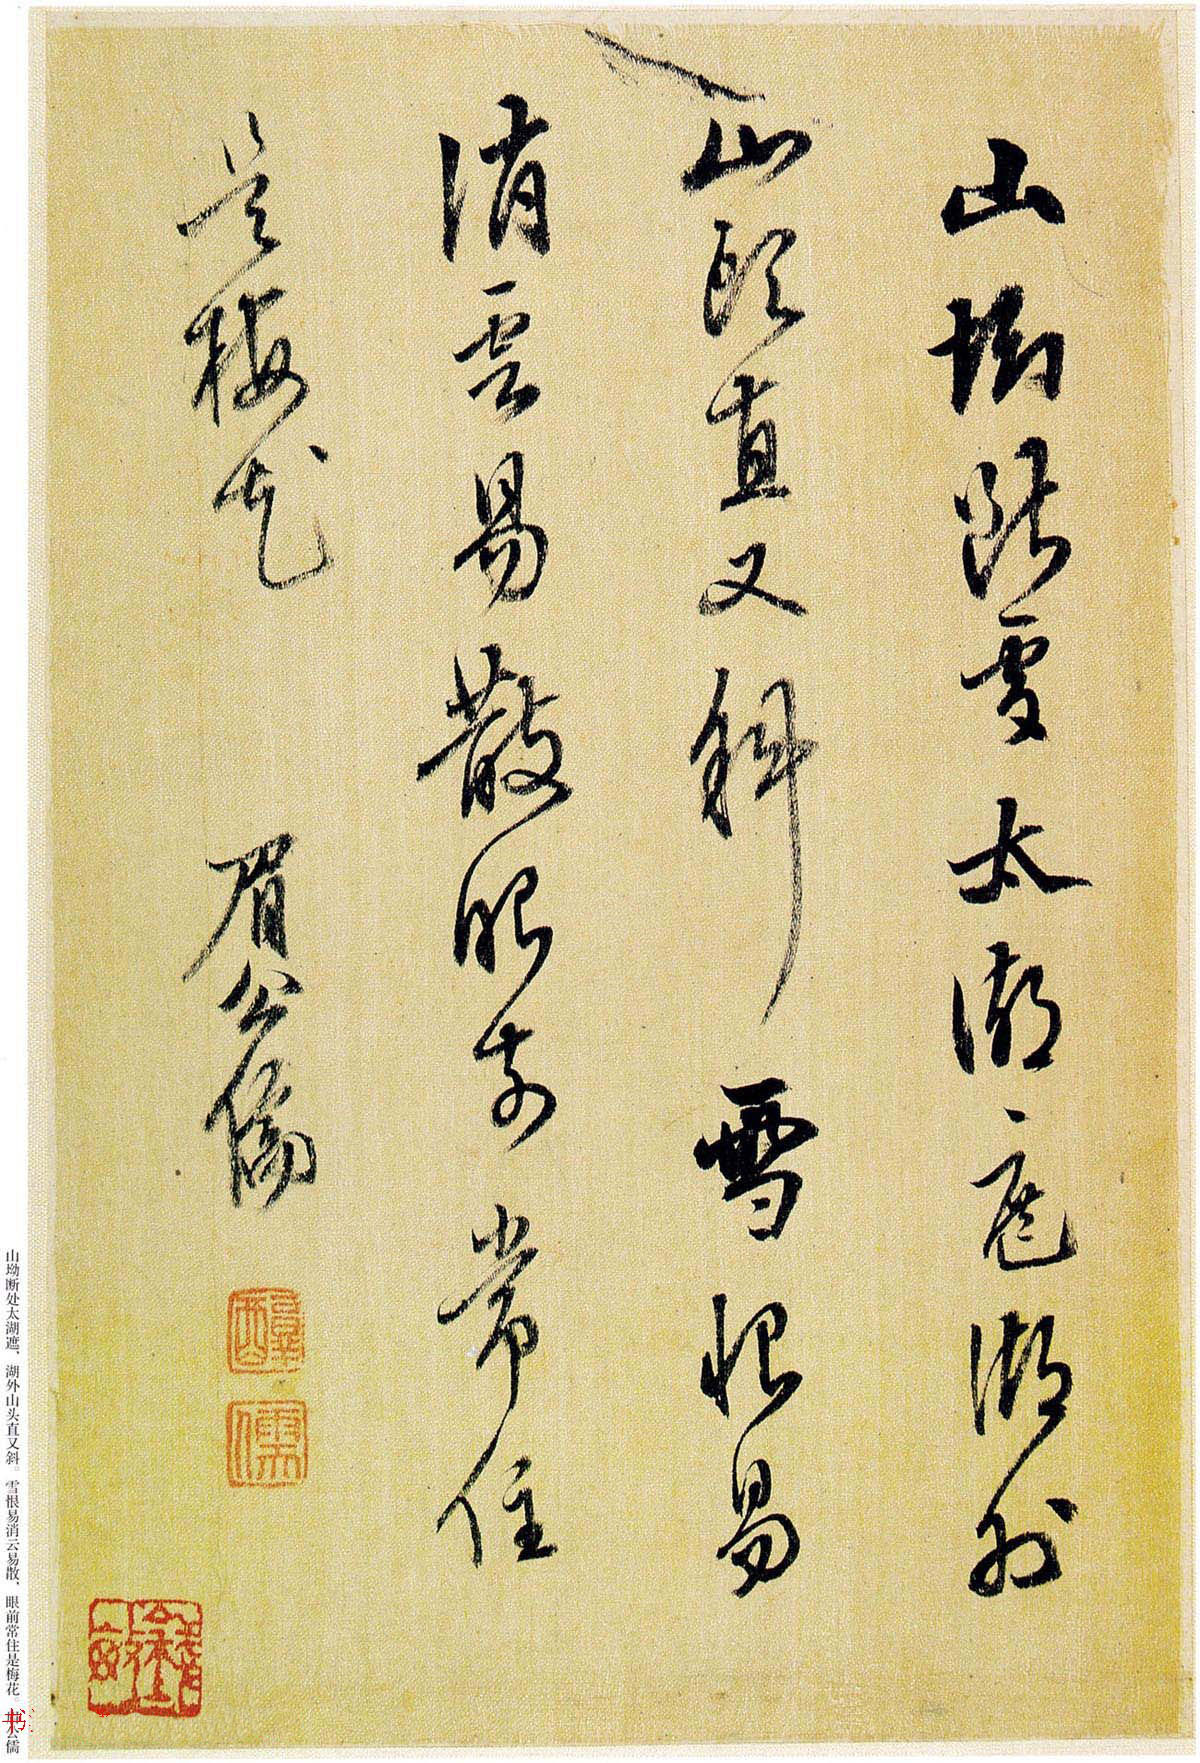 山坳断處太湖遮湖外
山頭直又斜雪恨易
消雲易散眼前常住
是梅花
眉公儒
醇
儒
山坳断处太湖遮、湖外山头直又斜。雪恨易消云易散、眼前常住是梅花。眉公儒
书